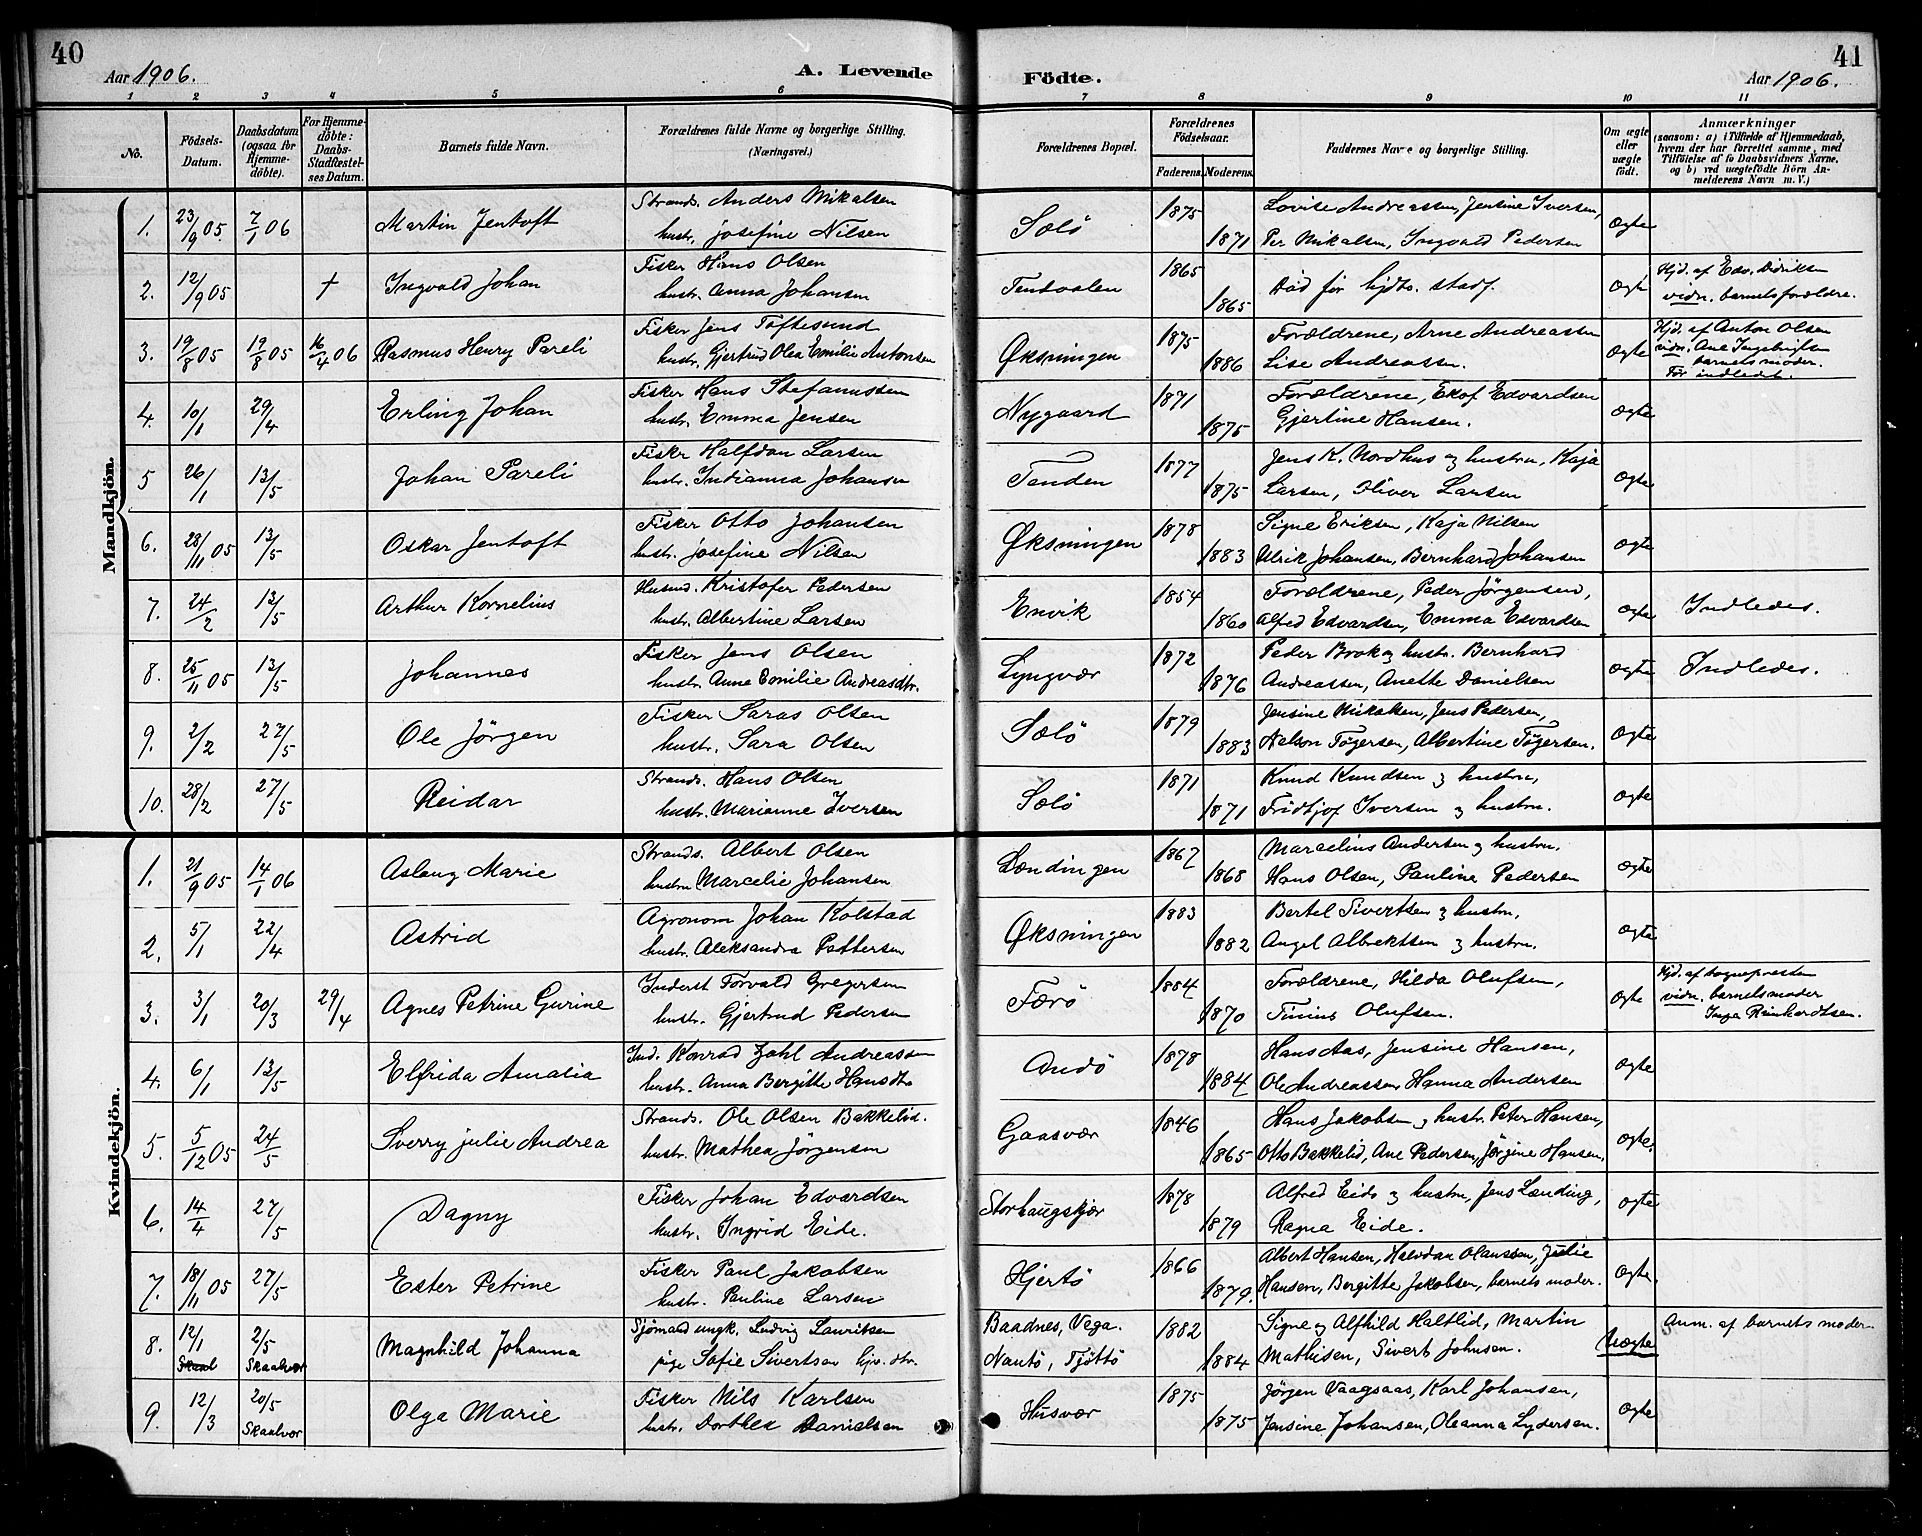 40
Aar 1906.
A. Levende Födte.
41
Aar 1906.
1 2 3 4 5 6 7 8 9 10 11
No.
Födsels-Datum.
Daabsdatum (ogsaa for Hjemme-döbte).
For Hjemme-döbte: Daabs-Stadfæstel-ses Datum.
Barnets fulde Navn.
Forældrenes fulde Navne og borgerlige Stilling. (Næringsvei.)
Forældrenes Bopæl.
Forældrenes Födselsaar.
Faderens. Moderens.
Faddernes Navne og borgerlige Stilling.
Om ægte eller uægte födt.
Anmærkninger
(saasom: a) i Tilfælde af Hjemmedaab, hvem der har forrettet samme, med Tilföielse af to Daabsvidners Navne, og b) ved uægtefödte Börn Anmelderens Navn m. V.)
Mandkjön.
1. 23/9 05. 7/1 06 Martin Jentoft Strands. Anders Mikalsen Sölö 1875 Lovise Andreassen, Jensine Iversen, ægte
hustr. Josefine Nilsen 1871 Per Mikalsen, Ingvald Pedersen
2. 12/9 05 † Ingvald Johan Fisker Hans Olsen Tentvalen 1865 Död før hjdb. stadf. ægte Hjd. af Edv. Didriksen
hustr. Anna Johansen 1865 vidn. barnets forældre.
3. 19/8 05 19/8 05 16/4 06 Rasmus Henry Pareli Fisker Jens Toftesund Øksningen 1875 Forældrene, Arne Andreassen ægte Hjd. af Anton Olsen
hustr. Gjertrud Olea Emilie Antonsen 1886 Lise Andreassen. vidn. Ane Ingebrigtsen
barnets moder.
Før indledet.
4. 10/1 29/4 Erling Johan Fisker Hans Stefanussen Nygaard 1871 Forældrene, Ekof Edvardsen ægte
hustr. Emma Jensen 1875 Gjertine Hansen.
5 26/1 13/5 Johan Pareli Fiskr Halfdan Larsen Tenden 1877 Jens K. Nordhus og hustru, Kaja ægte
hustr. Indianna Johansen 1875 Larsen, Oliver Larsen
6. 28/11 05 13/5 Oskar Jentoft Fisker Otto Johansen Øksningen 1878 Signe Eriksen, Kaja Nilsen ægte
hustr. Josefine Nilsen 1883 Ulrik Johansen, Bernhard Johansen
7. 24/2 13/5 Arthur Kornelius Husmd. Kristofer Pedersen Envik 1854 Forældrene, Peder Jörgensen, ægte Indledes.
hustr. Albertine Larsen 1860 Alfred Edvardsen, Emma Edvardsen
8. 25/11 05 13/5 Johannes Fisker Jens Olsen Lyngvær 1872 Peder Brok og hustr. Bernhard ægte Indledes.
hustr. Anne Emilie Andreasdtr. 1876 Andreassen, Anette Danielsen
9. 2/2 27/5 Ole Jörgen Fisker Saras Olsen Sölö 1879 Jensine Mikalsen, Jens Pedersen, ægte
hustr. Sara Olsen 1883 Nelson Tögersen, Albertine Tögersen.
10. 28/2 27/5 Reidar Strands. Hans Olsen Sölö 1871 Knud Knudsen og hustru, ægte
hustr. Marianne Iversen 1871 Fridtjof Iversen og hustru.
Kvindekjön.
1. 21/9 05 14/1 06 Aslaug Marie Strands. Albert Olsen Lændingen 1867 Marcelius Andersen og hustru. ægte
hustru Marcelie Johansen 1868 Hans Olsen, Pauline Pedersen
2. 5/1 22/4 Astrid Agronom Johan Kolstad Øksningen 1883 Bertel Sivertsen og hustru, ægte
hustr. Aleksandra Pettersen 1882 Angel Albrektsen og hustru.
3. 3/1 20/3 29/4 Agnes Petrine Gurine Inderst Torvald Gregersen Færö 1884 Forældrene, Hilda Olufsen, ægte Hjd. af sognepresten
hustr. Gjertrud Pedersen 1870 Tinius Olufsen. vidn. barnets moder
Inga Reinhardtsen.
4. 6/1 13/5 Elfrida Amalia Ind. Konrad Zahl Andreassen Andö 1878 Hans Aas, Jensine Hansen, ægte
hustr. Anna Bergitte Hansdtr 1884 Ole Andreassen, Hanna Andersen
5. 5/12 05 24/5 Sverry Julie Andrea Strands. Ole Olsen Bakkelid. Gaasvær 1846 Hans Jakobsen og hustr. Peter Hansen, ægte.
hustr. Mathea Jörgensen 1865 Otto Bakkelid, Ane Pedersen, Jörgine Hansen.
6. 14/4 27/5 Dagny Fisker Johan Edvardsen Storhaugskjær 1878 Alfred Eide og hustru, Jens Lænding, ægte
hustr. Ingrid Eide. 1879 Ragna Eide.
7. 18/11 05 27/5 Ester Petrine Fisker Paul Jakobsen Hjertö 1866 Albert Hansen, Halvdan Olaussen, Julie ægte.
hustr. Pauline Larsen 1879. Hansen, Bergitte Jakobsen, barnets moder.
8. 12/1 2/5 Skaalvær Magnhild Johanna Sjömand ungk. Ludvig Lauritsen Baadnes, Vega. 1882 Signe og Alfhild Haltlid, Martin Uægte Anm. af barnets moder
pige Sofie Sivertsen Nautö, Tjöttö 1884 Mathisen, Sivert Johnsen.
9. 12/3 20/5 Skaalvær Olga Marie Fisker Nils Karlsen Husvær 1875 Jörgen Vaagsaas, Karl Johansen, ægte
hustr. Dorthea Danielsen 1875 Jensine Johansen, Oleanna Lydersen.